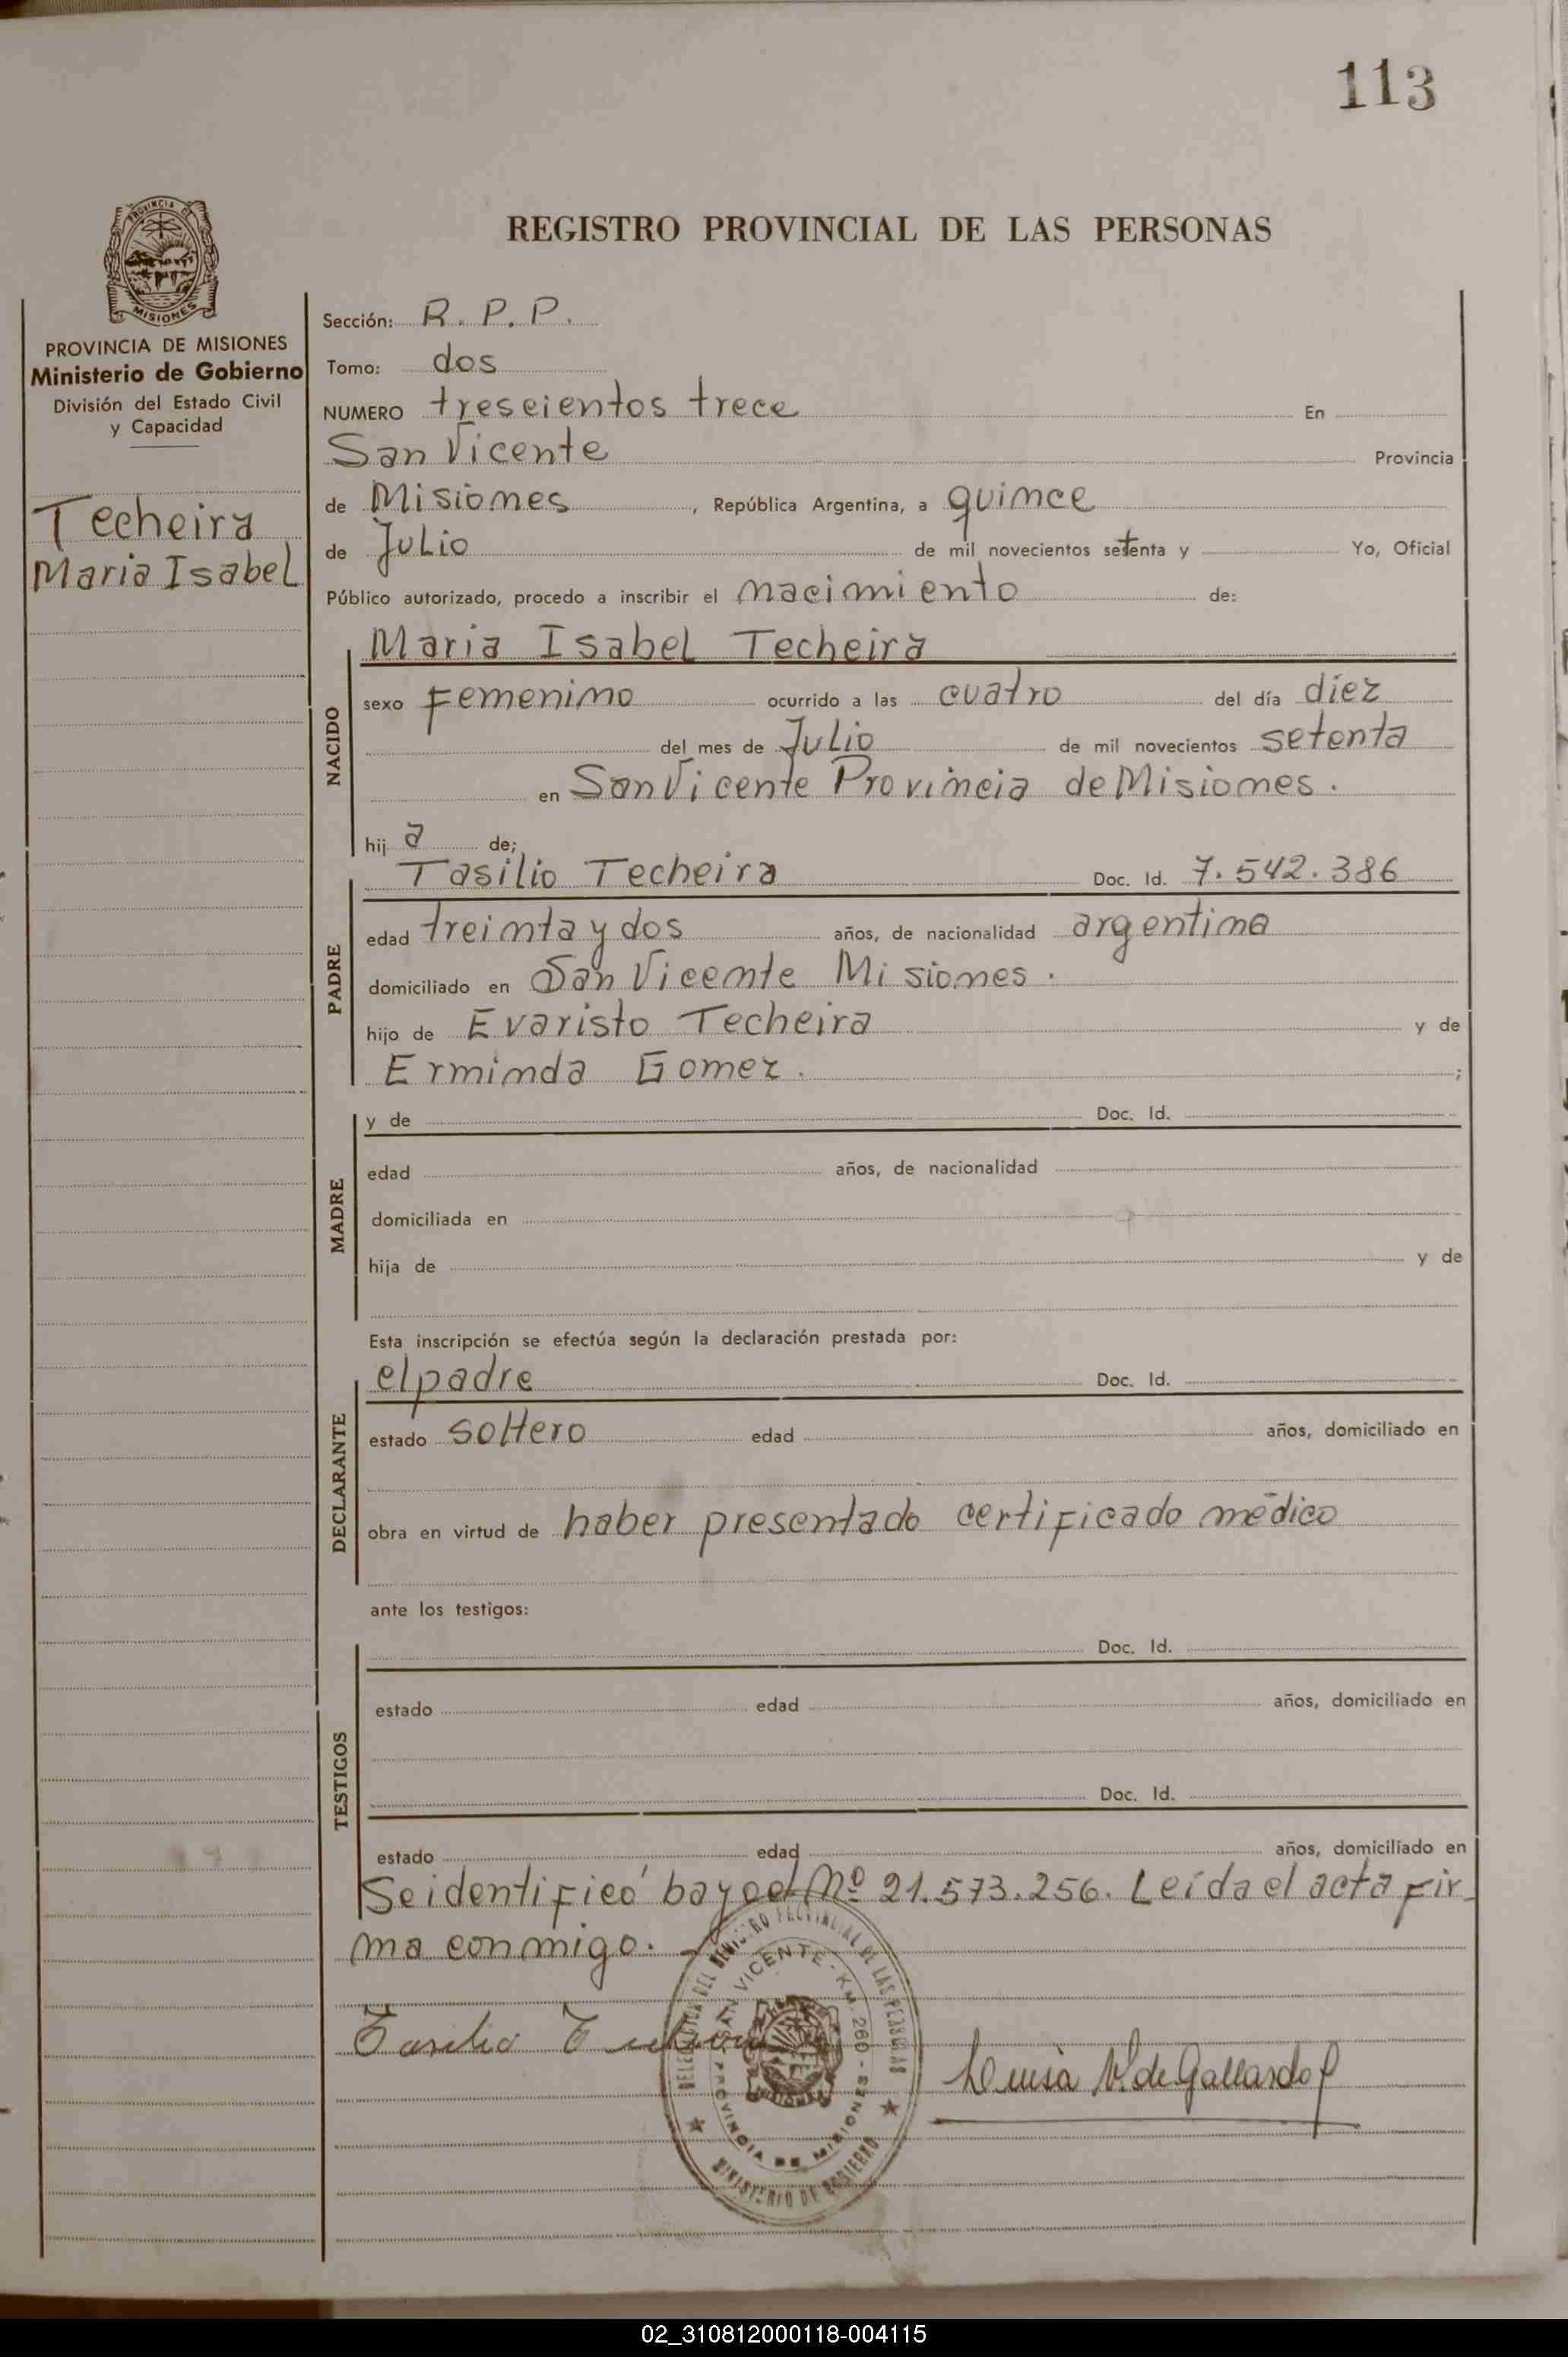 113
PROVINCIA DE
MISIONES
PROVINCIA DE MISIONES
Ministerio de Gobierno
División del Estado Civil
y Capacidad
Techeira
Maria Isabel
REGISTRO PROVINCIAL DE LAS PERSONAS
Sección: R. P. P.
Tomo: dos
NUMERO trescientos trece En
San Vicente Provincia
de Misiones, República Argentina, a quince
de Julio de mil novecientos setenta y Yo, Oficial
Público autorizado, procedo a inscribir el nacimiento de:
NACIDO
Maria Isabel Techeira
sexo femenino ocurrido a las cuatro del día diez
del mes de Julio de mil novecientos setenta
en San Vicente Provincia de Misiones.
hij a de;
PADRE
Tasilio Techeira Doc. Id. 7.542.386
edad treinta y dos años, de nacionalidad argentina
domiciliado en San Vicente Misiones.
hijo de Evaristo Techeira y de
Erminda Gomez. ;
MADRE
y de Doc. Id.
edad años, de nacionalidad
domiciliada en
hija de y de
Esta inscripción se efectúa según la declaración prestada por:
DECLARANTE
el padre Doc. Id.
estado soltero edad años, domiciliado en
obra en virtud de haber presentado certificado médico
ante los testigos:
TESTIGOS
Doc. Id.
estado edad años, domiciliado en
Doc. Id.
estado edad años, domiciliado en
Se identificó bayo el Nº 21.573.256. Leída el acta fir-
ma conmigo.
Tasilio Techeira
DELEGACION DEL REGISTRO PROVINCIAL DE LAS PERSONAS
SAN VICENTE - KM. 260 - MISIONES
PROVINCIA DE MISIONES
MINISTERIO DE GOBIERNO
Luisa V. de Gallardo
02_310812000118-004115